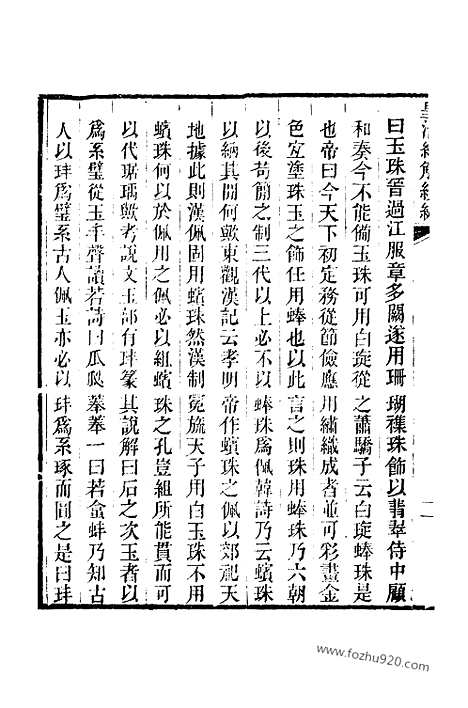 皇清經解續編
二
曰玉珠晉過江服章多闕遂用珊瑚襍珠飾以翡翠侍中顧
和奏今不能備玉珠可用白琁從之蕭驕子云白琁蜯珠是
也帝曰今天下初定務從節儉應用繡織成者並可彩畫金
色宜塗珠玉之飾任用蜯也以此言之則珠用蜯珠乃六朝
以後苟簡之制三代以上必不以蜯珠爲佩韓詩乃云蠙珠
以納其閒何歟東觀漢記云孝明帝作蠙珠之佩以郊祀天
地據此則漢佩固用蠙珠然漢制冕旒天子用白玉珠不用
蠙珠何以於佩用之佩必以組蠙珠之孔豈組所能貫而可
以代琚瑀歟考說文玉部有玤篆其說解曰石之次玉者以
爲系璧從玉丰聲讀若詩曰瓜瓞菶菶一曰若盦蚌乃知古
人以玤爲璧系古人佩玉亦必以玤爲系琢而圓之是曰玤
www.fozhu920.com